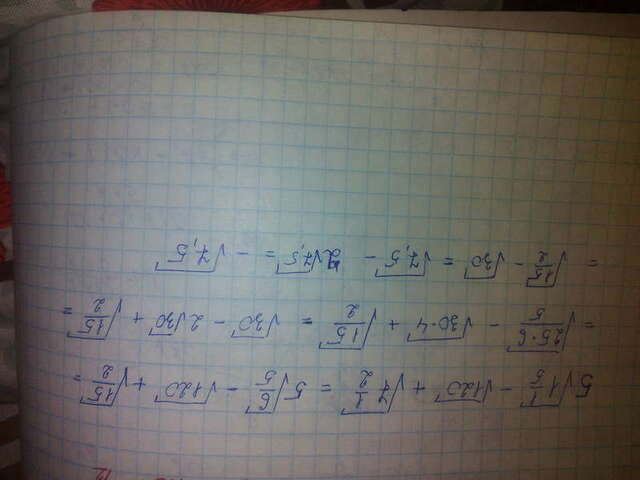 5√(1 1/5) - √120 + √(7 1/2) = 5√(6/5) - √120 + √(15/2) =
= √(25·6/5) - √(30·4) + √(15/2) = √30 - 2√30 + √(15/2) =
= √(15/2) - √30 = √7,5 - 2√7,5 = - √7,5